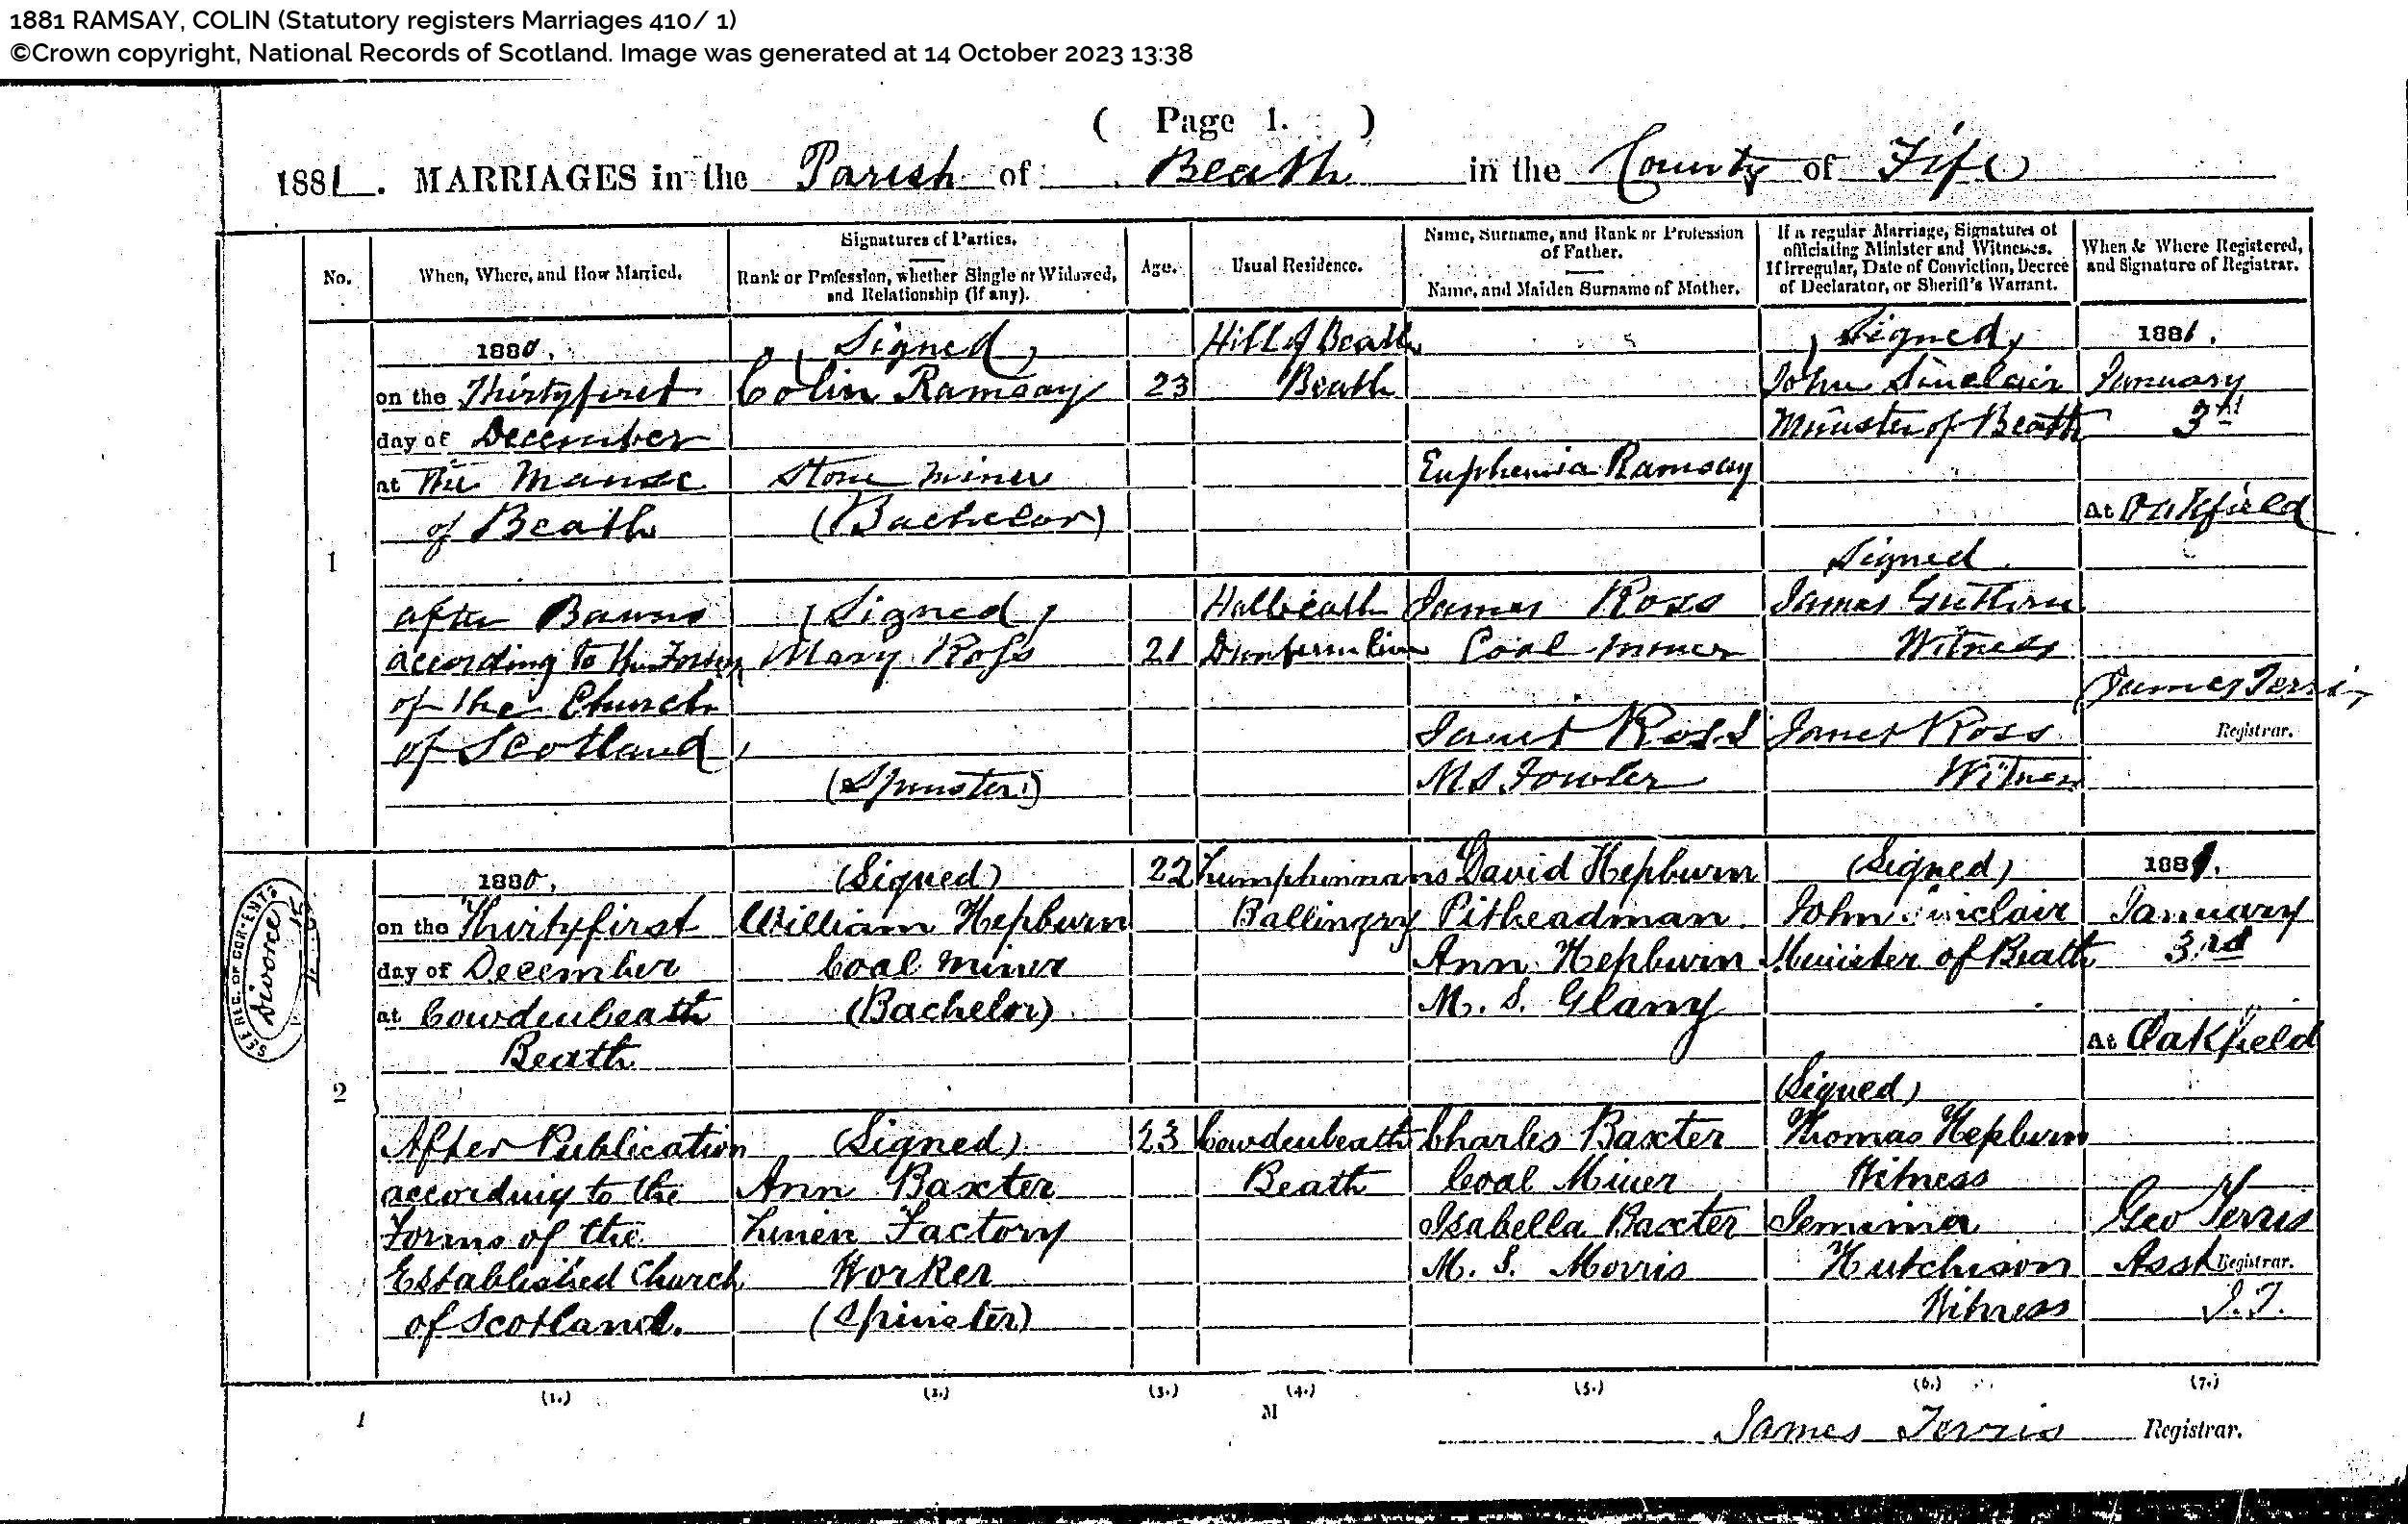 1881 RAMSAY, COLIN (Statutory registers Marriages 410/ 1)
©Crown copyright, National Records of Scotland. Image was generated at 14 October 2023 13:38
( Page 1. )
1881. MARRIAGES in the Parish of Beath in the County of Fife
No.
When, Where, and How Married.
Signatures of Parties.
Rank or Profession, whether Single or Widowed,
and Relationship (if any).
Age.
Usual Residence.
Name, Surname, and Rank or Profession
of Father.
Name, and Maiden Surname of Mother.
If a regular Marriage, Signatures of
officiating Minister and Witnesses.
If Irregular, Date of Conviction, Decree
of Declarator, or Sheriff's Warrant.
When & Where Registered,
and Signature of Registrar.
1
1880.
on the Thirtyfirst
day of December
at The Manse
of Beath
after Banns
according to the Forms
of the Church
of Scotland
(Signed)
Colin Ramsay
Stone miner
(Bachelor)
(Signed)
Mary Ross
(Spinster)
23
21
Hill of Beath
Beath
Halbeath
Dunfermline
Euphemia Ramsay
James Ross
Coal miner
Janet Ross
M S Fowler
(Signed)
John Sinclair
Minister of Beath
Signed
James Guthrie
Witness
Janet Ross
Witness
1881.
January
3rd
At Oakfield
James Terris
Registrar.
2
SEE REG. OF COR. ENTS
Divorce
1880.
on the Thirtyfirst
day of December
at Cowdenbeath
Beath
After Publication
according to the
Forms of the
Established Church
of Scotland.
(Signed)
William Hepburn
Coal miner
(Bachelor)
(Signed)
Ann Baxter
Linen Factory
Worker
(Spinster)
22
23
Lumphinnans
Ballingry
Cowdenbeath
Beath
David Hepburn
Pitheadman
Ann Hepburn
M. S. Glany
Charles Baxter
Coal Miner
Isabella Baxter
M. S. Morris
(Signed)
John Sinclair
Minister of Beath
(Signed)
Thomas Hepburn
Witness
Jemima
Hutchison
Witness
1881.
January
3rd
At Oakfield
Geo Terris
Asst Registrar.
J.T.
(1.) (2.) (3.) (4.) (5.) (6.) (7.)
1
M
James Terris Registrar.